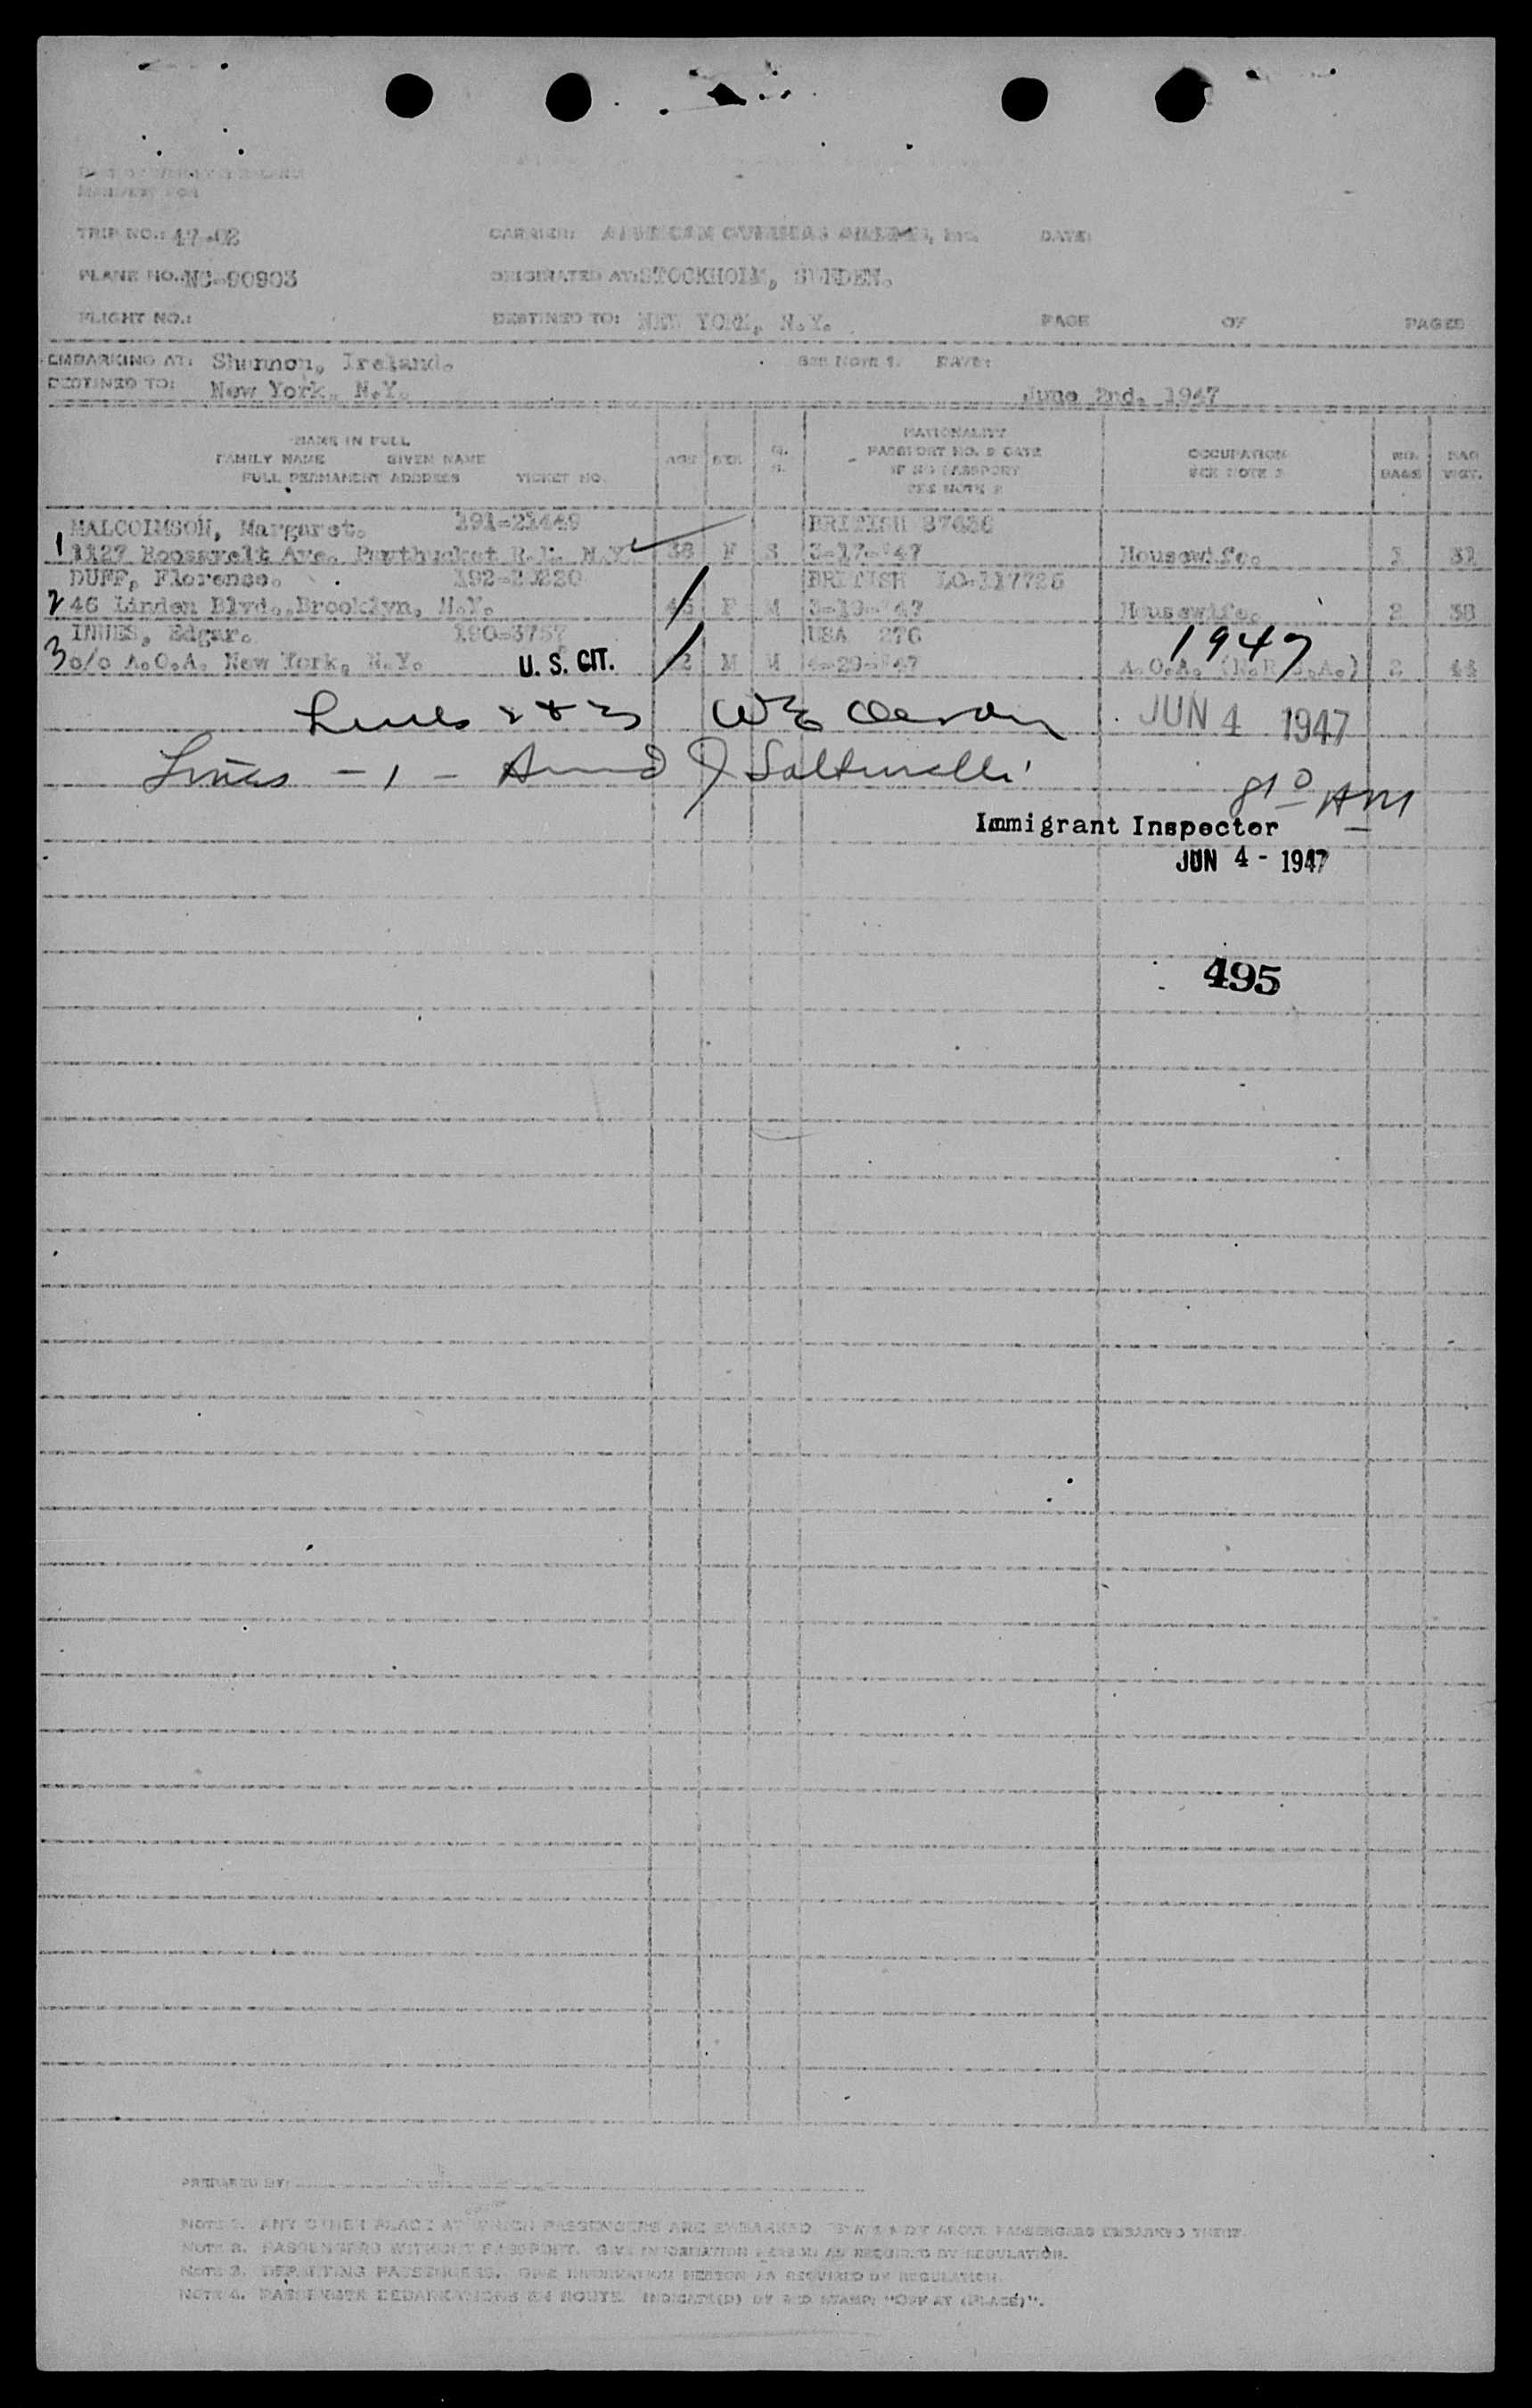 MANIFEST FOR
TRIP NO.: 47-02 CARRIER: AMERICAN OVERSEAS AIRLINES, Inc. DATE:
PLANE NO. NC-90903 ORIGINATED AT: STOCKHOLM, SWEDEN.
FLIGHT NO.: DESTINED TO: NEW YORK, N.Y. PAGE OF PAGES
EMBARKING AT: Shannon, Ireland. SEE NOTE 1. DATE:
DESTINED TO: New York, N.Y. June 2nd. 1947
NAME IN FULL
FAMILY NAME GIVEN NAME
FULL PERMANENT ADDRESS TICKET NO.
AGE SEX
NATIONALITY
PASSPORT NO. & DATE
IF NO PASSPORT
SEE NOTE 2
OCCUPATION
SEE NOTE 3
BAGS
WGT.
MALCOLMSON, Margaret. 191-21449 BRITISH 37636
1 1127 Roosevelt Ave. Pawthucket R.I. N.Y. 38 F S 3-17-'47 Housewife. 1 31
DUFF, Florence. BRITISH LO-117726
2 46 Linden Blvd., Brooklyn, N.Y. 45 F M 3-19-'47 Housewife. 2 38
INNES, Edgar. 190-3757 USA 276 1947
3 c/o A.O.A. New York, N.Y. U. S. CIT. M M 4-29-'47 A.O.A. 2 44
Lines 2 & 3 JUN 4 1947
Lines - 1 -
8 10 AM
Immigrant Inspector
JUN 4 - 1947
495
PREPARED BY:
NOTE 1. ANY OTHER PLACE AT WHICH PASSENGERS ARE EMBARKED ABOVE PASSENGERS EMBARKED THERE.
NOTE 2. PASSENGERS WITHOUT PASSPORT. GIVE INFORMATION HEREON AS REQUIRED BY REGULATION.
NOTE 3. DEPARTING PASSENGERS. GIVE INFORMATION HEREON AS REQUIRED BY REGULATION.
NOTE 4. PASSENGER DEBARKATIONS EN ROUTE. INDICATE(D) BY RED STAMP: "OFF AT (PLACE)".